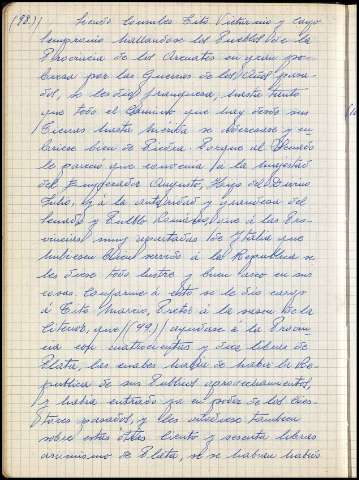 (98.) Siendo Consules Tito Victurnio y cayo
Sempronio hallandose los Pueblos de la
Provincia de los Arevatos en gran po-
breza por las Guerras de los Años pasa-
dos, se les dio franqueza, hasta tanto
que todo el Camino que hay desde sus
tierras hasta Merida se aderezase y cu-
briese bien de Piedra. Porque al Senado
le pareció que convenia a la magestad
del Emperador Augusto, Hijo del Divino
Julio, y á la autoridad y grandeza del
Senado y Pueblo Romano, que á las Pro-
vincias muy apartadas de Italia que
hubiesen bien servido á la Republica se
les diese todo lustre y buen aseo en sus
cosas. Conforme á esto se le dio cargo
á Tito Marcio, Pretor á la sazon de la
Citerior, que (99.) ayudase á la Provin-
cia con cuatrocientas y diez libras de
Plata, las cuales habia de haber la Re-
publica de sus Publicos aprovechamientos,
y habia entrado ya en poder de los Cues-
tores pasados, y les añadiese tambien
sobre estas otras ciento y sesenta libras
asimismo de Plata, que se habian habido